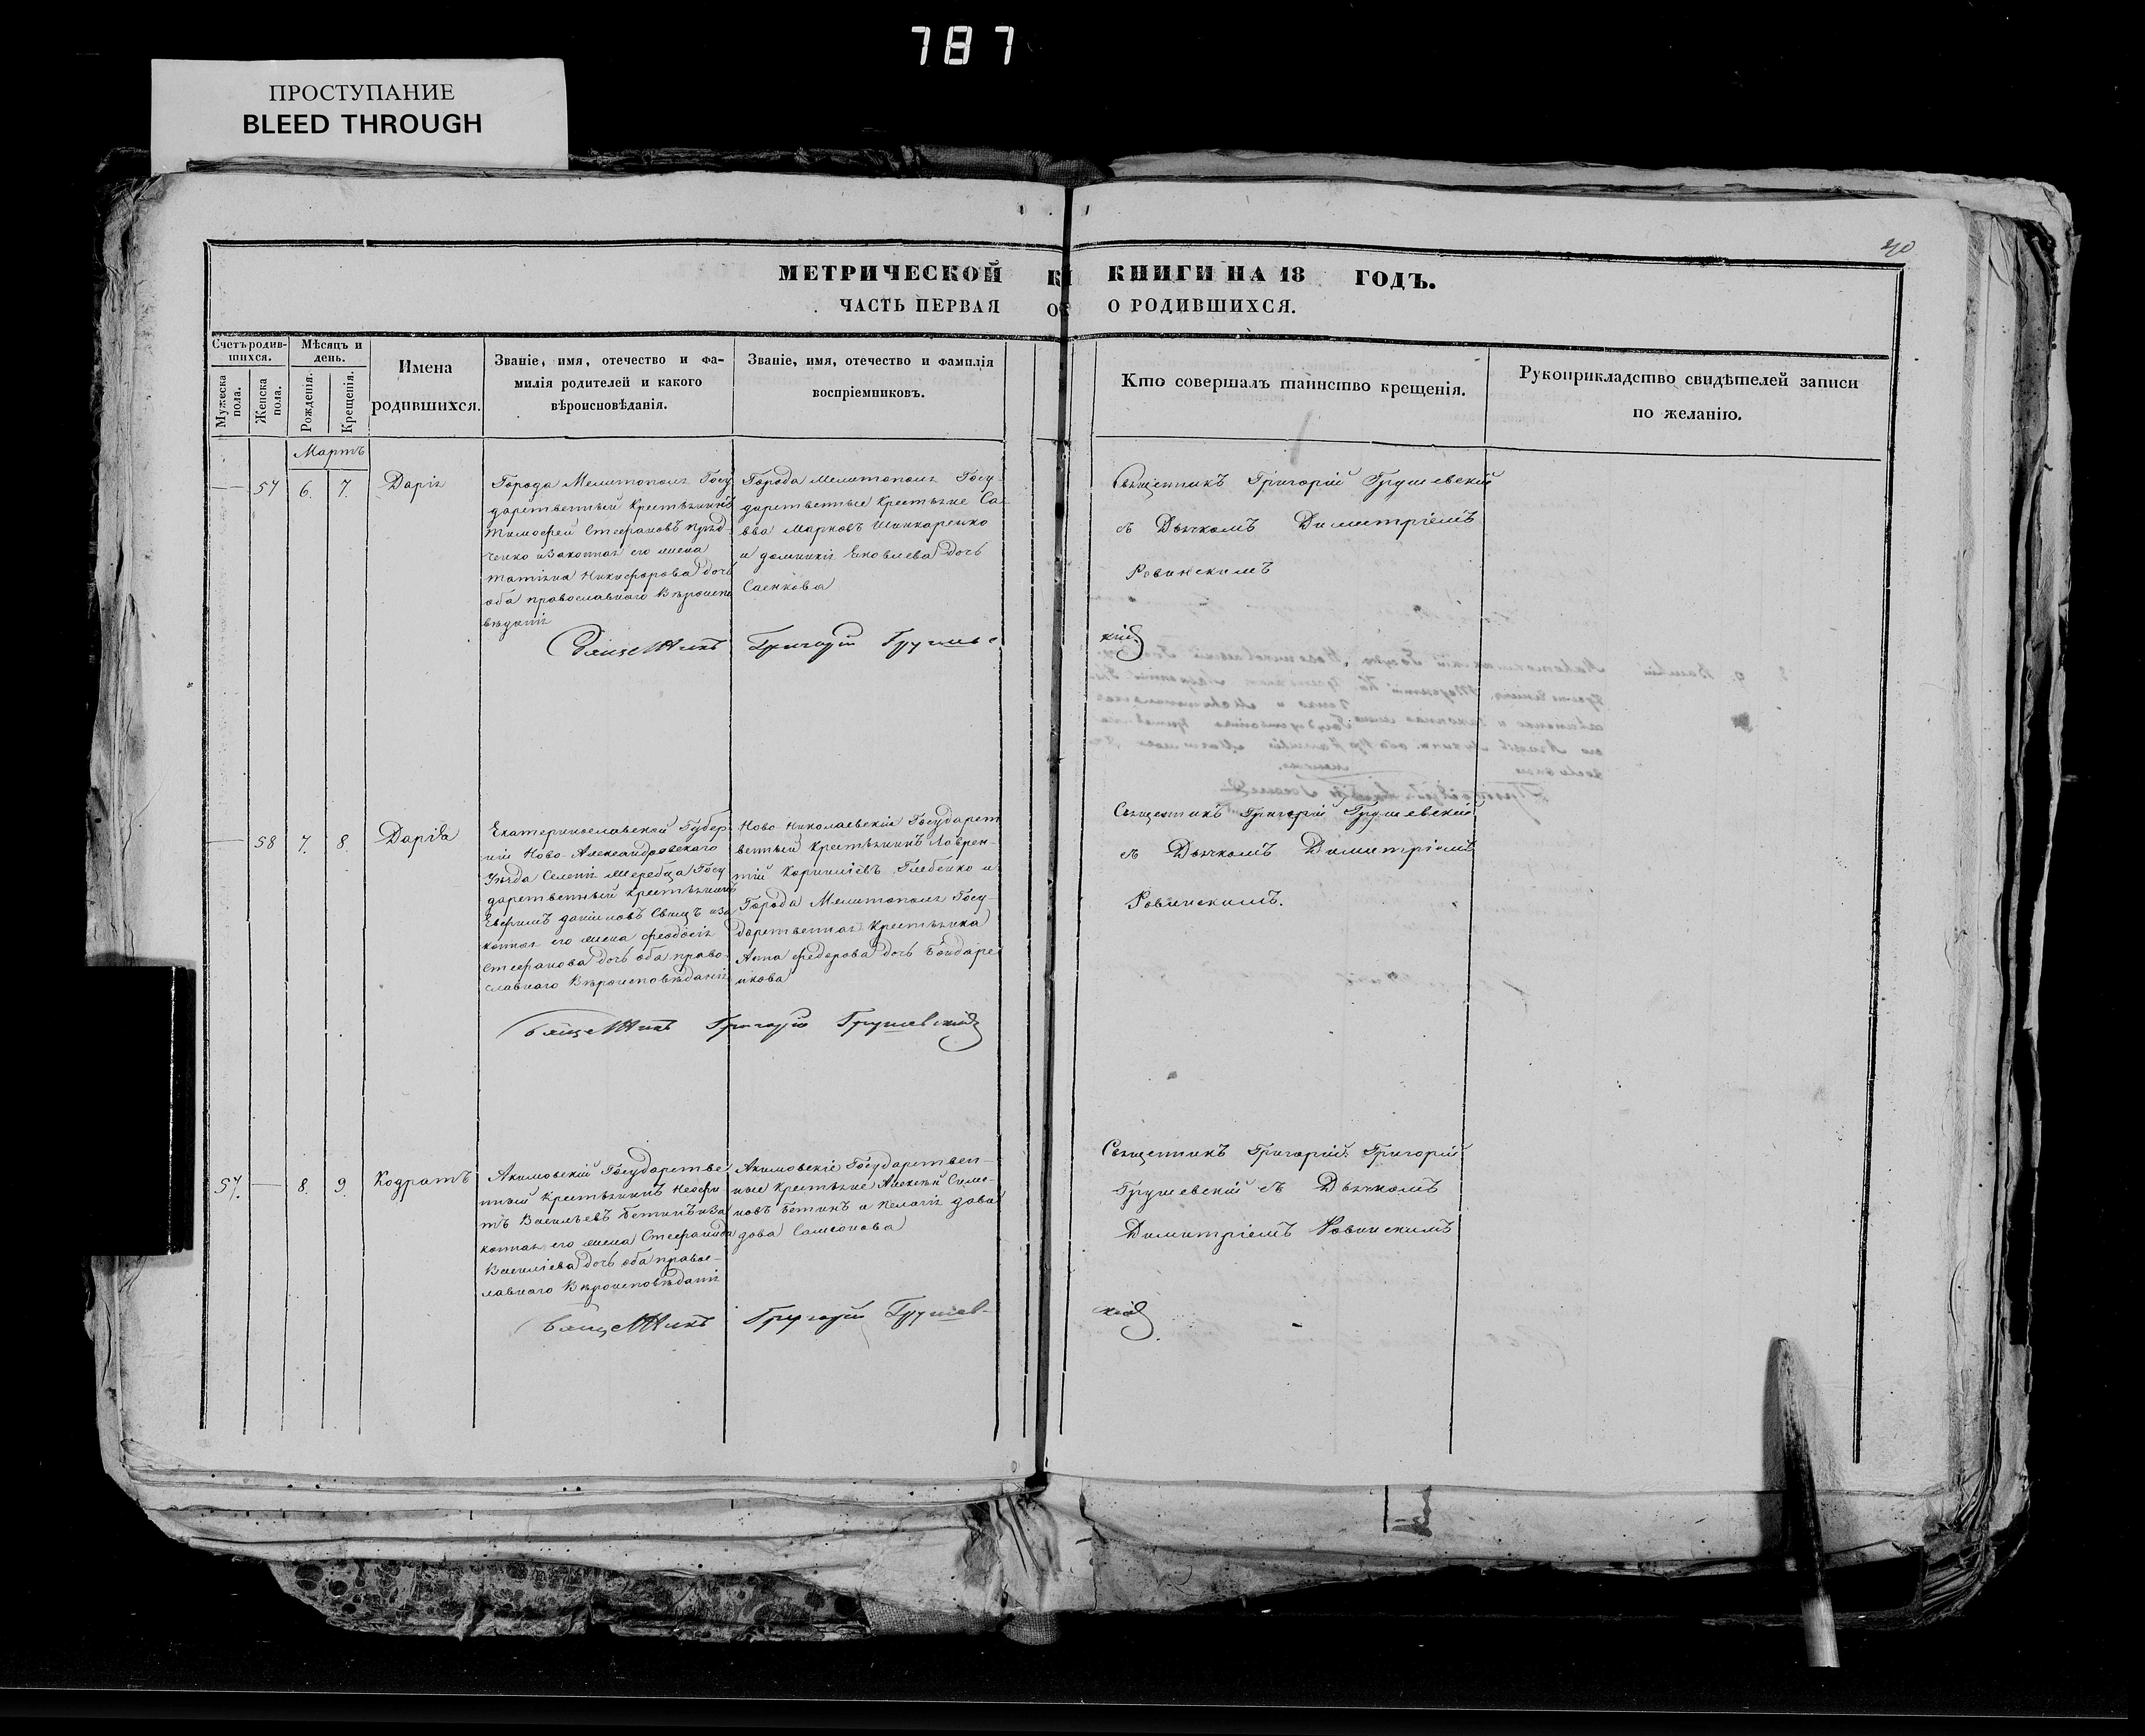 787
ПРОСТУПАНИЕ
BLEED THROUGH
40
МЕТРИЧЕСКОЙ КНИГИ НА 18 ГОДЪ.
ЧАСТЬ ПЕРВАЯ О РОДИВШИХСЯ.
Счетъ родив-
шихся.
Мужеска пола.
Женска пола.
Мѣсяцъ и
день.
Рожденія.
Крещенія.
Имена
родившихся.
Званіе, имя, отечество и фа-
милія родителей и какого
вѣроисновѣданія.
Званіе, имя, отечество и фамилія
воспріемниковъ.
Кто совершалъ таинство крещенія.
Рукоприкладство свидѣтелей записи
по желанію.
Мартъ
— 57 6. 7. Дарія
Города Мелитополя Госу
дарственный Крестьянинъ
Тимофей Стефановъ
ченко и Законная его жена
Татіяна Никифорова дочь
оба православнаго Вѣроиспо
вѣданія
Города Мелитополя Госу-
дарственные Крестьяне Са-
ва Марковъ Шинкаренко
и Домникія Яковлева дочь
Саенкова
Священникъ Григорій Грушевскій
съ Дьячкомъ Димитріемъ
Ровинскимъ
Священникъ Григорій Грушевс
кій
— 58 7. 8. Дарія
Екатеринославской Губер
ніи Ново-Александровскаго
Уѣзда Селенія Жеребца Госу
дарственный Крестьянинъ
Евфимъ Даніиловъ и За
конная его жена Феодосія
Стефанова дочь оба право-
славнаго Вѣроисповѣданія
Ново-Николаевскій Государст
венный Крестьянинъ Лаврен-
тій Корниліевъ Глебенко и
Города Мелитополя Госу-
дарственная Крестьянка
Анна Федорова дочь Бондаре
нкова
Священникъ Григорій Грушевскій
съ Дьячкомъ Димитріемъ
Ровинскимъ.
Священникъ Григорій Грушевскій
57. — 8. 9. Кодратъ
Акимовскій Государстве
нный Крестьянинъ Неофи
тъ Васильевъ Бетинъ и За
конная его жена Стефанида
Василіева дочь оба право-
лавнаго Вѣроисповѣданія
Акимовскіе Государствен-
ные Крестьяне Алексѣй Симо-
новъ Бетинъ и Пелагія дова
дова Самсонова
Священникъ Григорій Григорій
Грушевскій съ Дьячкомъ
Димитріемъ Ровинскимъ
Священникъ Григорій Грушев-
скій